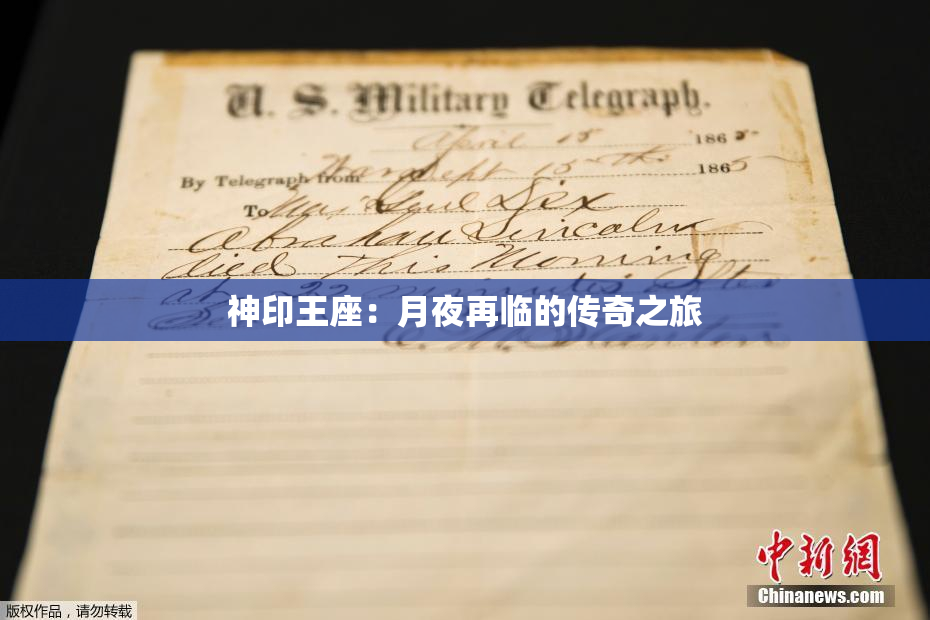 U. S. Military Telegraph.
April 15 1865
By Telegraph from War Dept 15th 1865
To Maj Genl Dix
Abraham Lincoln
died This Morning
at 22 minutes after
神印王座：月夜再临的传奇之旅
E. M. Stanton
中新网
Chinanews.com
版权作品，请勿转载